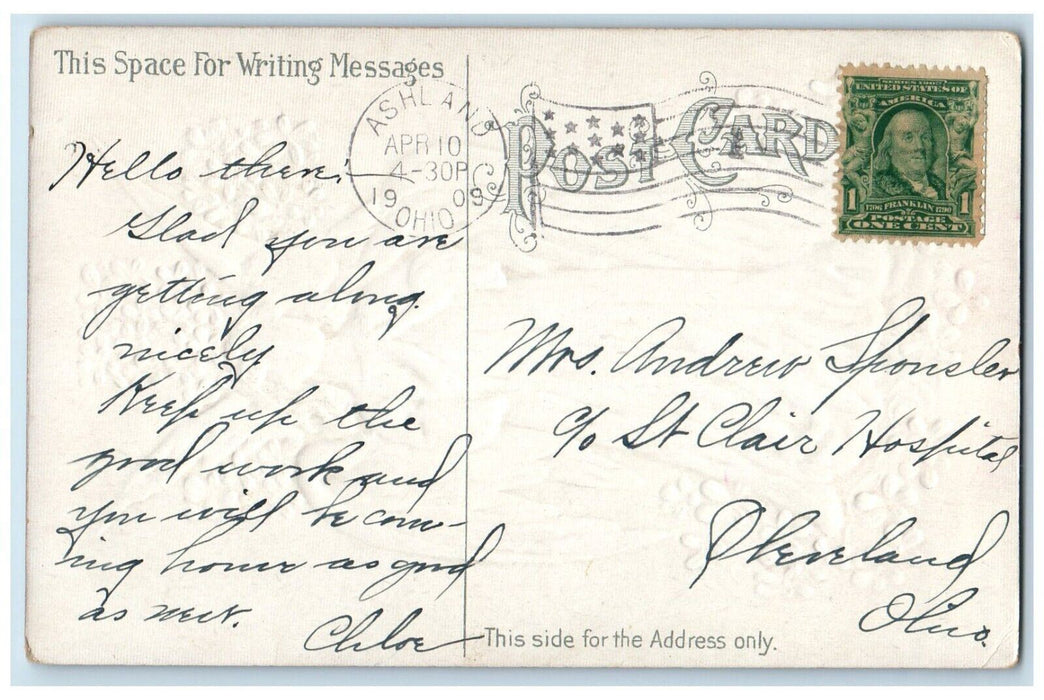 This Space For Writing Messages
Hello there:—
Glad you are
getting along
nicely
Keep up the
good work and
you will be com-
ing home as good
as new.
Chloe
ASHLAND
APR 10
4-30P
1909
OHIO
POST CARD
SERIES 1902
UNITED STATES OF
AMERICA
1 1
1706 FRANKLIN 1790
POSTAGE
ONE CENT
Mrs. Andrew Sponsler
c/o St Clair Hospital
Cleveland
Ohio.
This side for the Address only.